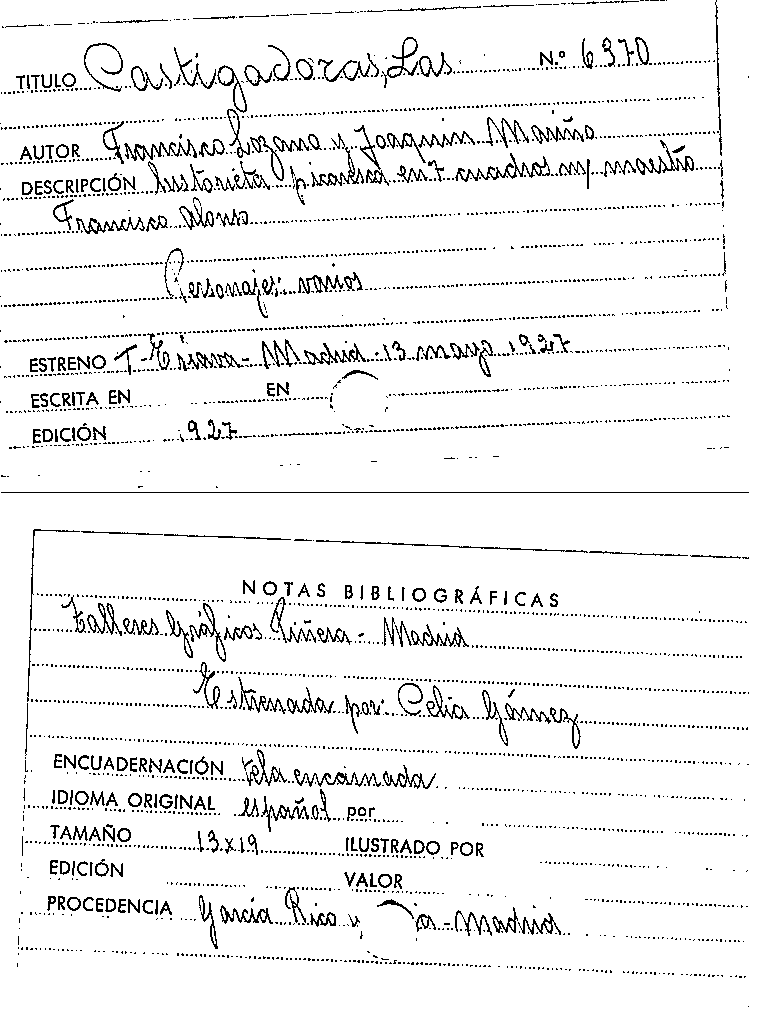 TITULO Castigadoras, Las N.º 6370
AUTOR Francisco Lozano y Joaquin Mariño
DESCRIPCIÓN historieta picaresca en 7 cuadros m/ maestro
Francisco Alonso
Personajes: varios
ESTRENO T-Eslava-Madrid-13 mayo 1927
ESCRITA EN EN
EDICIÓN 1927
NOTAS BIBLIOGRÁFICAS
Talleres Gráficos Piñera-Madrid
Estrenada por: Celia Gámez
ENCUADERNACIÓN tela encarnada
IDIOMA ORIGINAL español por
TAMAÑO 13x19 ILUSTRADO POR
EDICIÓN VALOR
PROCEDENCIA García Rico y -Madrid